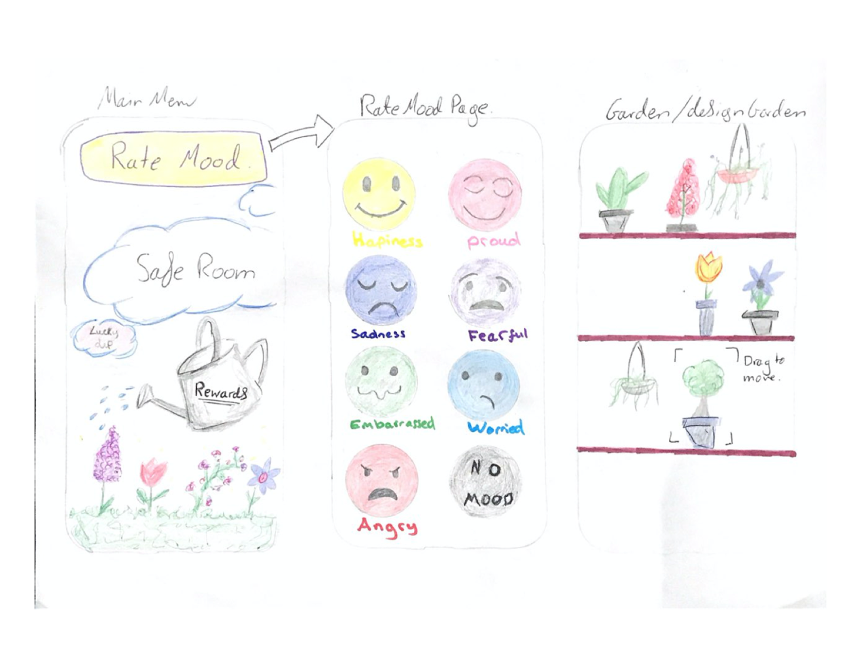 Main Menu
Rate Mood.
Safe Room
Lucky
dip
Rewards
Rate Mood Page.
Hapiness
proud
Sadness
Fearful
Embarrassed
Worried
Angry
NO
MOOD
Garden/design Garden
Drag to
move.